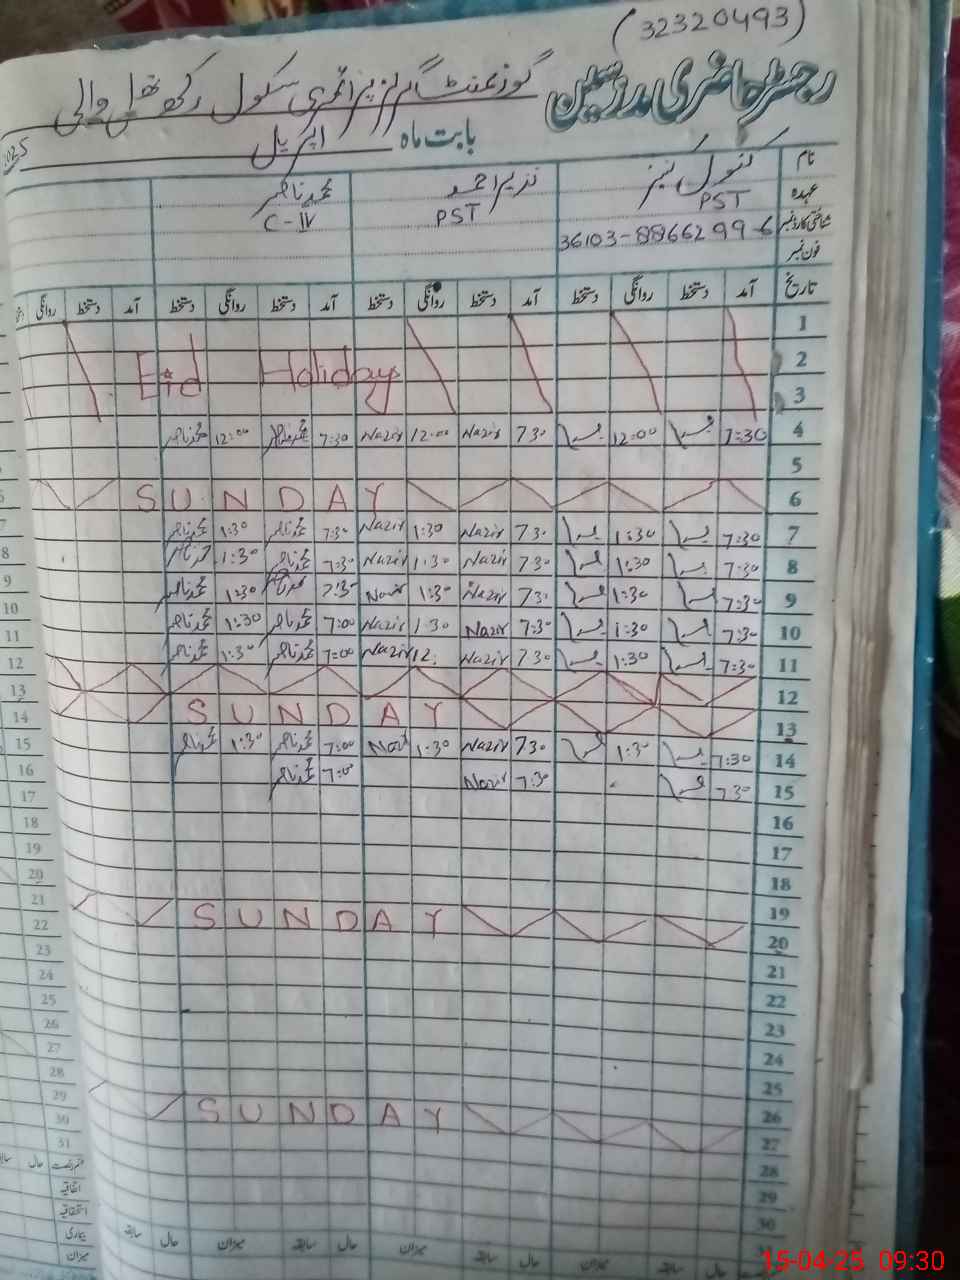 (32320493)
رجسٹر حاضری مدرسین گورنمنٹ گرلز پرائمری سکول رکھ تھل والی
بابت ماہ اپریل 2025
نام کنول کنیز ندیم احمد محمد ناصر
عہدہ PST PST C-IV
شناختی کارڈ نمبر 36103-8866299-6
فون نمبر
تاریخ آمد دستخط روانگی دستخط آمد دستخط روانگی دستخط آمد دستخط روانگی دستخط آمد دستخط روانگی
1
2 Eid Holiday
3
4 7:30 12:00 7 30 Nazir 12:00 Nazir 7:30 محمد ناصر 12:00 محمد ناصر
5
6 SUNDAY
7 7:30 1:30 7 30 Nazir 1:30 Nazir 7:30 محمد ناصر 1:30 محمد ناصر
8 7:30 1:30 7 30 Nazir 1:30 Nazir 7:30 محمد ناصر 1:30 محمد ناصر
9 7:30 1:30 7 30 Nazir 1:30 7:30 محمد ناصر 1:30 محمد ناصر
10 7:30 1:30 7:30 Nazir 1:30 Nazir 7:00 محمد ناصر 1:30 محمد ناصر
11 7:30 1:30 7 30 Nazir 12: Nazir 7:00 محمد ناصر 1:30 محمد ناصر
12
13 SUNDAY
14 7:30 1:30 7 30 Nazir 1:30 7:00 محمد ناصر 1:30 محمد ناصر
15 7:30 7:30 Nazir 7:00 محمد ناصر
16
17
18
19
20 SUNDAY
21
22
23
24
25
26
27 SUNDAY
28
29
30
حال سابقہ میزان حال سابقہ میزان حال سابقہ میزان حال سابقہ
7
8
9
10
11
12
13
14
15
16
17
18
19
20
21
22
23
24
25
26
27
28
29
30
31
حال
اتفاقیہ
استحقاقیہ
بیماری
میزان
15-04-25 09:30